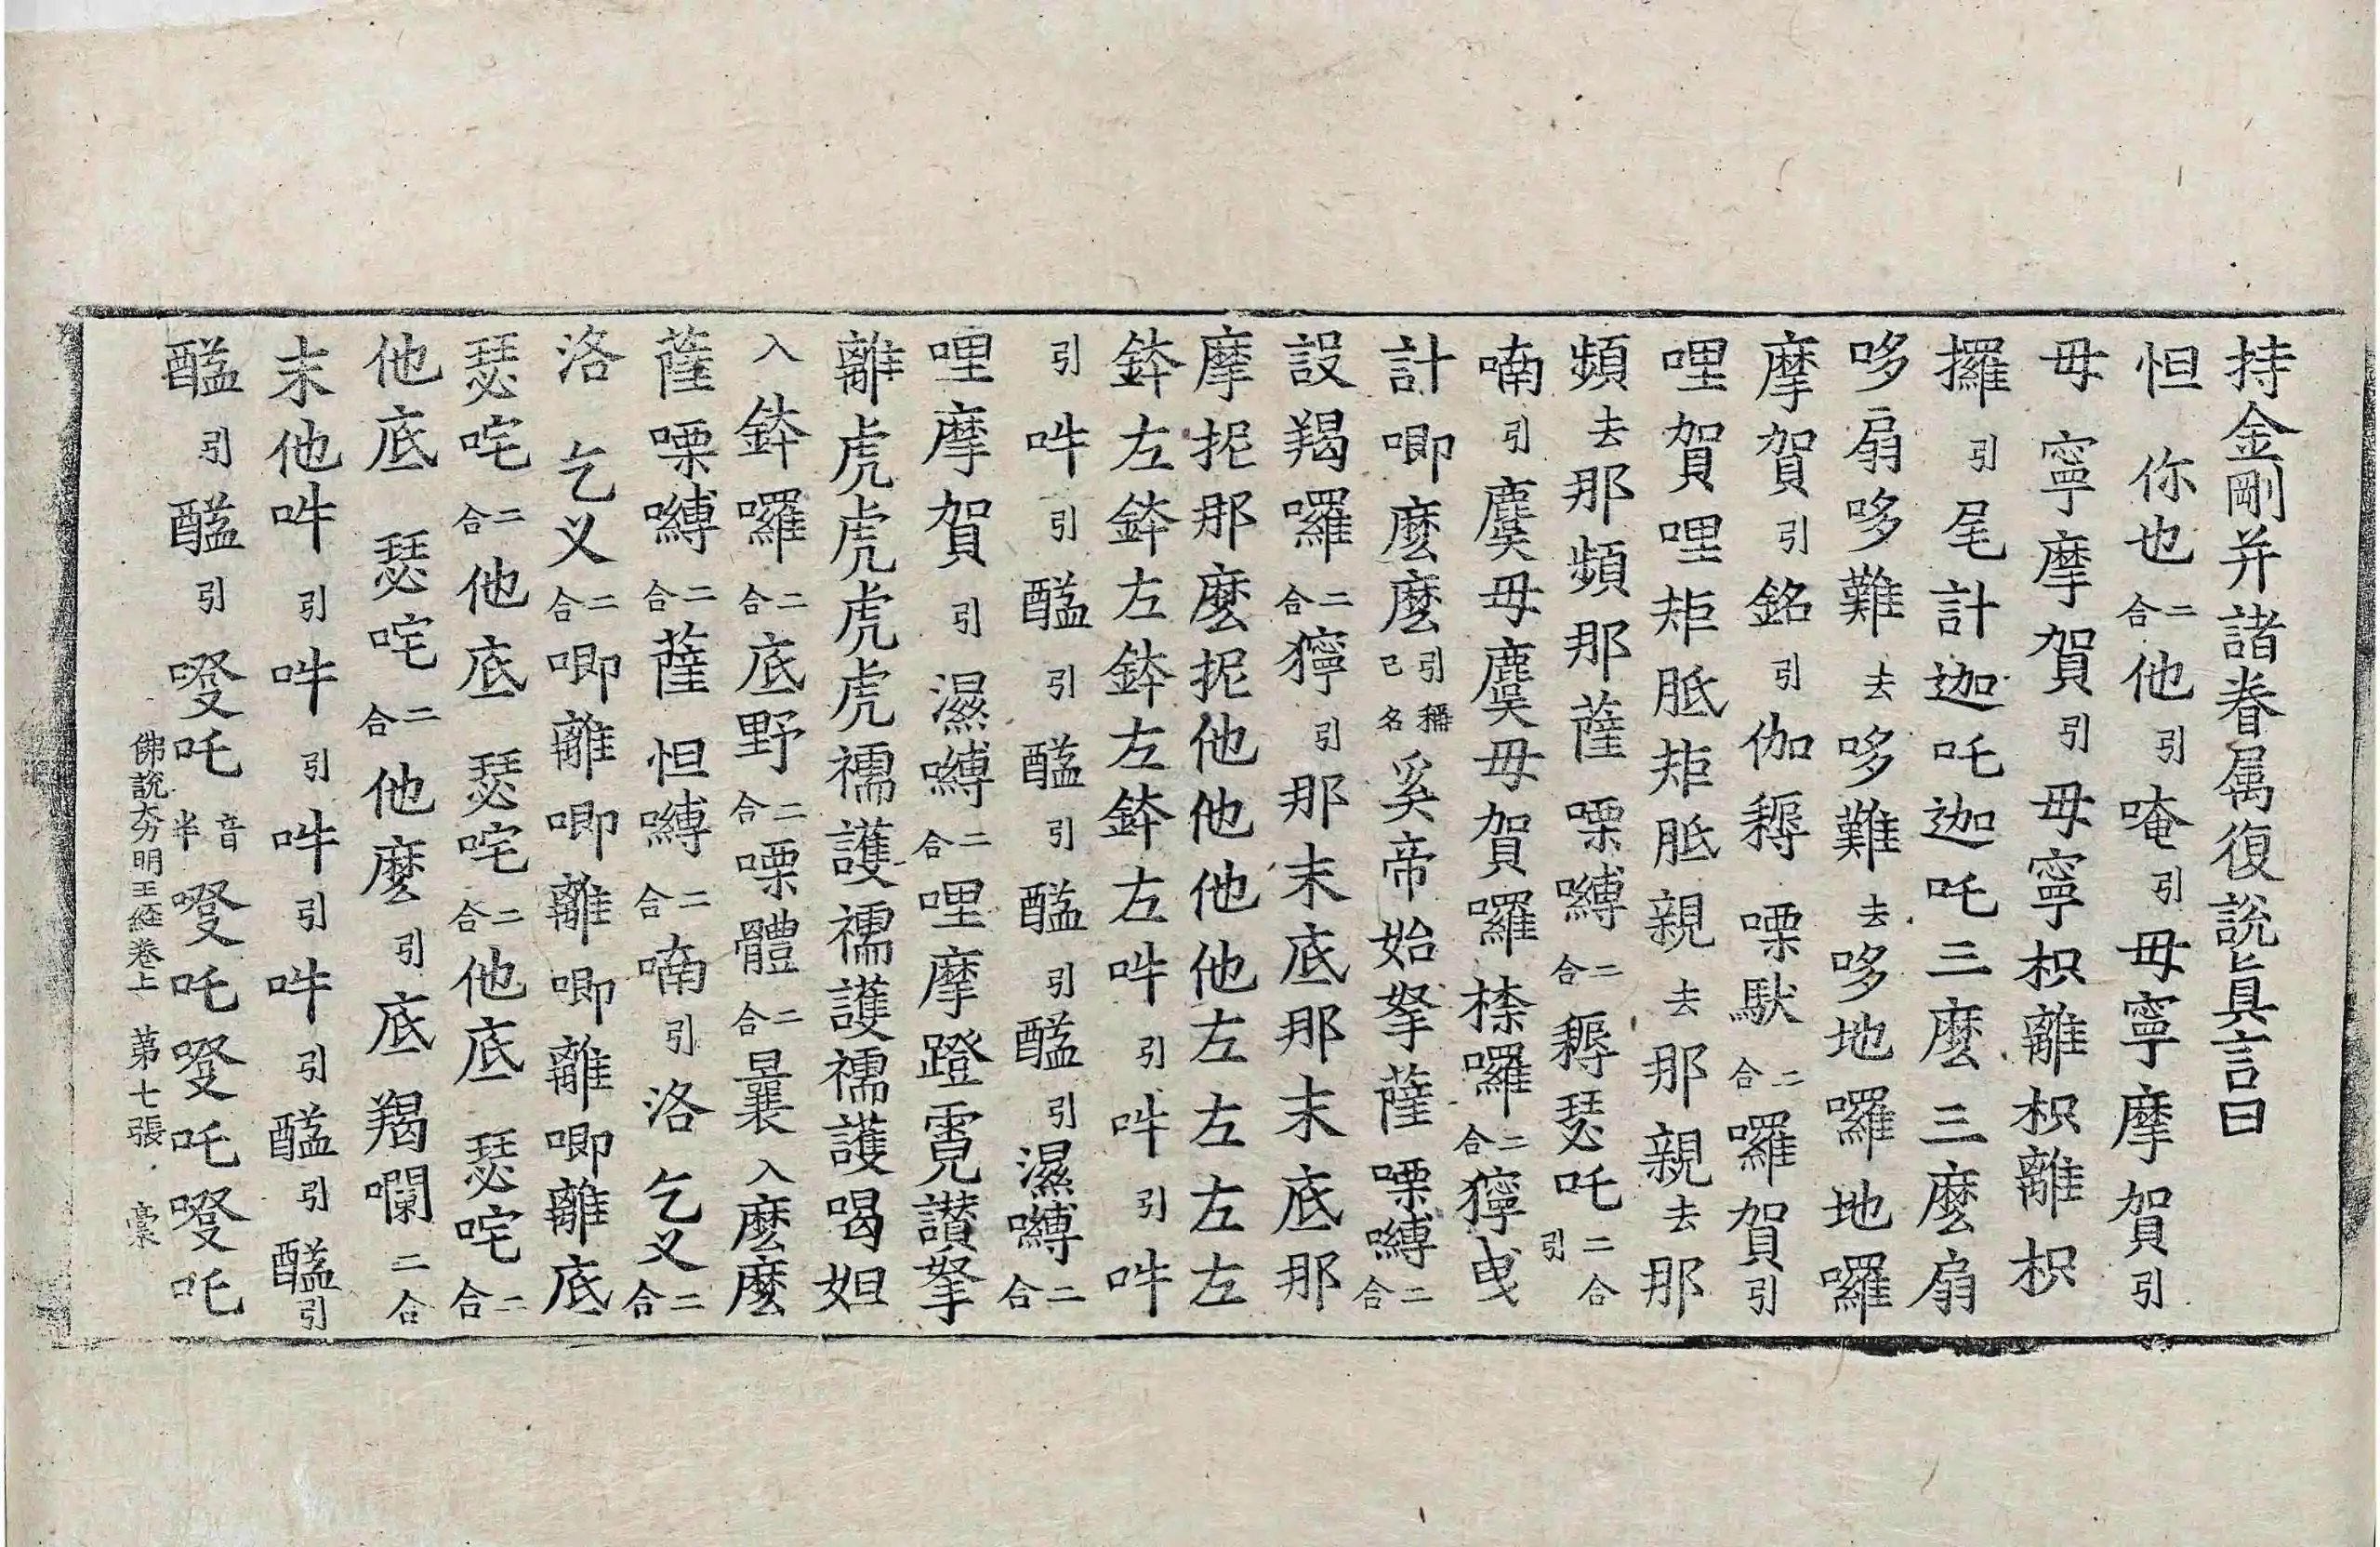 持金剛并諸眷属復說真言曰
怛你也二合他引唵引毋寧摩賀引
毋寧摩賀引毋寧枳離枳離枳
攞引尾計迦吒迦吒三麼三麼扇
哆扇哆難去哆難去哆地囉地囉
摩賀引銘引伽耨㗚馱二合囉賀引
哩賀哩矩胝矩胝親去那親去那
頻去那頻那薩㗚嚩二合耨瑟吒二合引
喃引麌毋麌毋賀囉㮈囉二合獰曳
計唧麼麼引稱己名奚帝始拏薩㗚嚩二合
設羯囉二合獰引那末底那末底那
摩抳那麼抳他他他他左左左左
鉢左鉢左鉢左鉢左吽引吽引吽
引吽引醯引醯引醯引醯引濕嚩二合
哩摩賀引濕嚩二合哩摩蹬霓讃拏
離虎虎虎虎襦護襦護襦護喝妲
入鉢囉二合底野二合㗚體二合曩入麼麼
薩㗚嚩二合薩怛嚩二合喃引洛乞义二合
洛乞义二合唧離唧離唧離唧離底
瑟咤二合他底瑟咤二合他底瑟咤二合
他底瑟咤二合他麼引底羯囒二合
末他吽引吽引吽引吽引醯引醯引
醯引醯引㘄吒半音㘄吒㘄吒㘄吒
佛說大力明王經卷上 第七張 槀